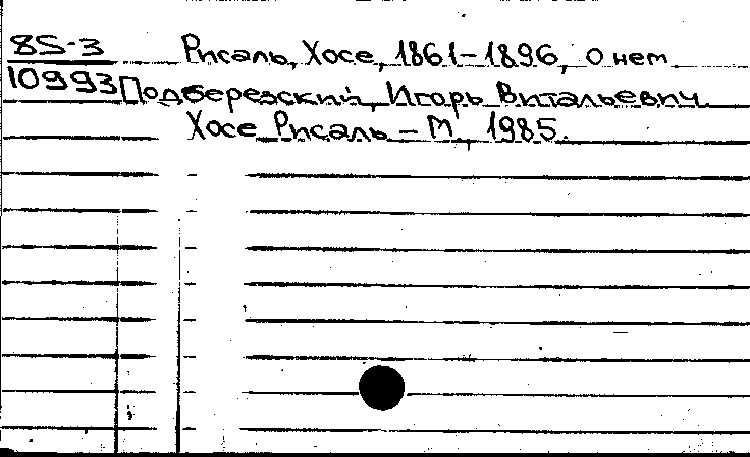 85-3 Рисаль, Хосе, 1861-1896, о нем
10993 Подберезский, Игорь Витальевич
Хосе Рисаль - М, 1985.